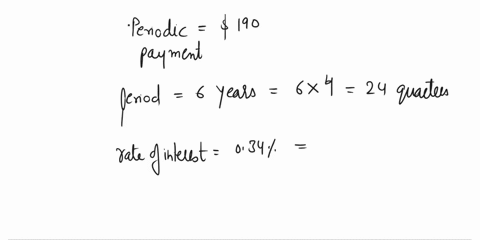 Periodic = $ 190
payment
period = 6 years = 6 x 4 = 24 quarters
rate of interest = 0.34% =